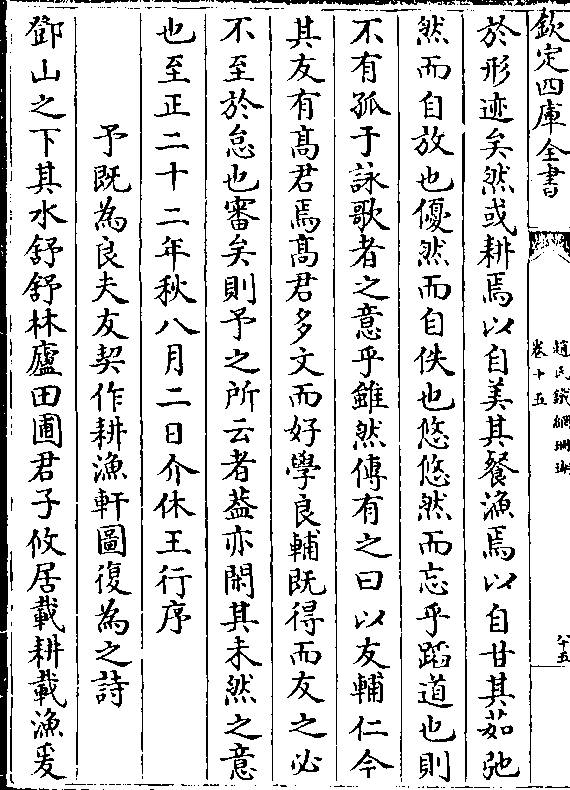 欽定四庫全書
趙氏鐵網珊瑚
卷十五
六十五
於形迹矣然或耕焉以自美其餐漁焉以自甘其茹弛
然而自放也優然而自佚也悠悠然而忘乎蹈道也則
不有孤于詠歌者之意乎雖然傳有之曰以友輔仁今
其友有髙君焉髙君多文而好學良輔既得而友之必
不至於怠也審矣則予之所云者葢亦閑其未然之意
也至正二十二年秋八月二日介休王行序
予既為良夫友契作耕漁軒圖復為之詩
鄧山之下其水舒舒林廬田圃君子攸居載耕載漁爰